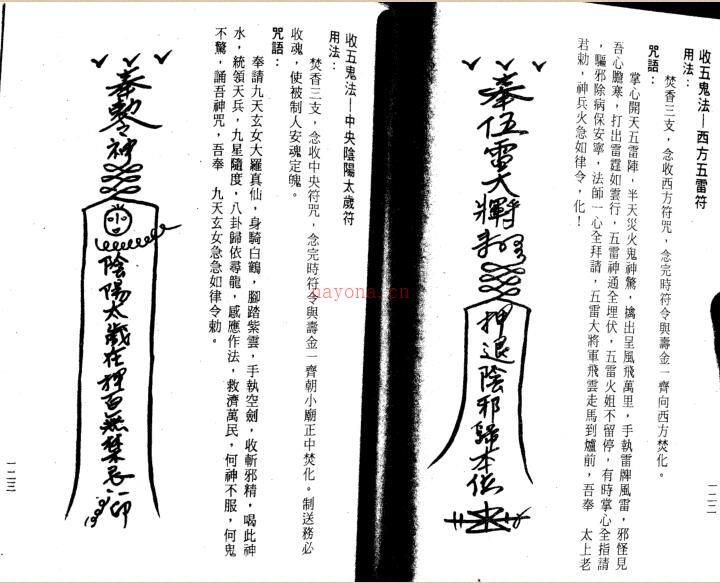 收五鬼法－西方五雷符
用法：
焚香三支，念收西方符咒，念完時符令與壽金一齊向西方焚化。
咒語：
掌心開天五雷陣，半天災火鬼神驚，擒出呈風飛萬里，手執雷牌風雷，邪怪見
吾心膽寒，打出雷霆如雲行，五雷神通全埋伏，五雷火姐不留停，有時掌心全指請
，驅邪除病保安寧，法師一心全拜請，五雷大將軍飛雲走馬到爐前，吾奉　太上老
君勅，神兵火急如律令，化！
奉伍雷大將軍
押退陰邪歸本位
一二二
收五鬼法－中央陰陽太歲符
用法：
焚香三支，念收中央符咒，念完時符令與壽金一齊朝小廟正中焚化。制送務必
收魂，使被制人安魂定魄。
咒語：
奉請九天玄女大羅真仙，身騎白鶴，腳踏紫雲，手執空劍，收斬邪精，喝此神
水，統領天兵，九星隨度，八卦歸依尋龍，感應作法，救濟萬民，何神不服，何鬼
不驚，誦吾神咒，吾奉　九天玄女急急如律令勅。
奉勅令神
陰陽太歲在押百無禁忌
印
一二三
nayona.cn